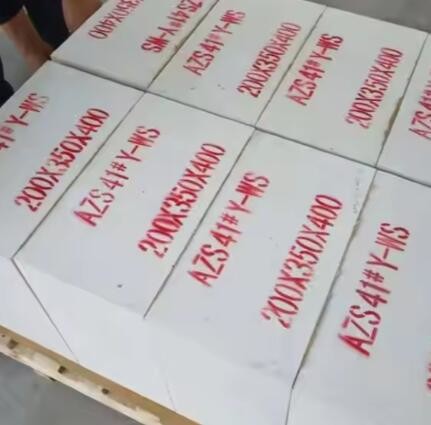 200X350X400
AZS41#Y-WS
AZS41#Y-WS
200X350X400
AZS41#Y-WS
200X350X400
1#Y-WS
200X350X400
AZS41#Y-WS
200X350X400
AZS41#Y-WS
200X350X400
AZS41#Y-WS